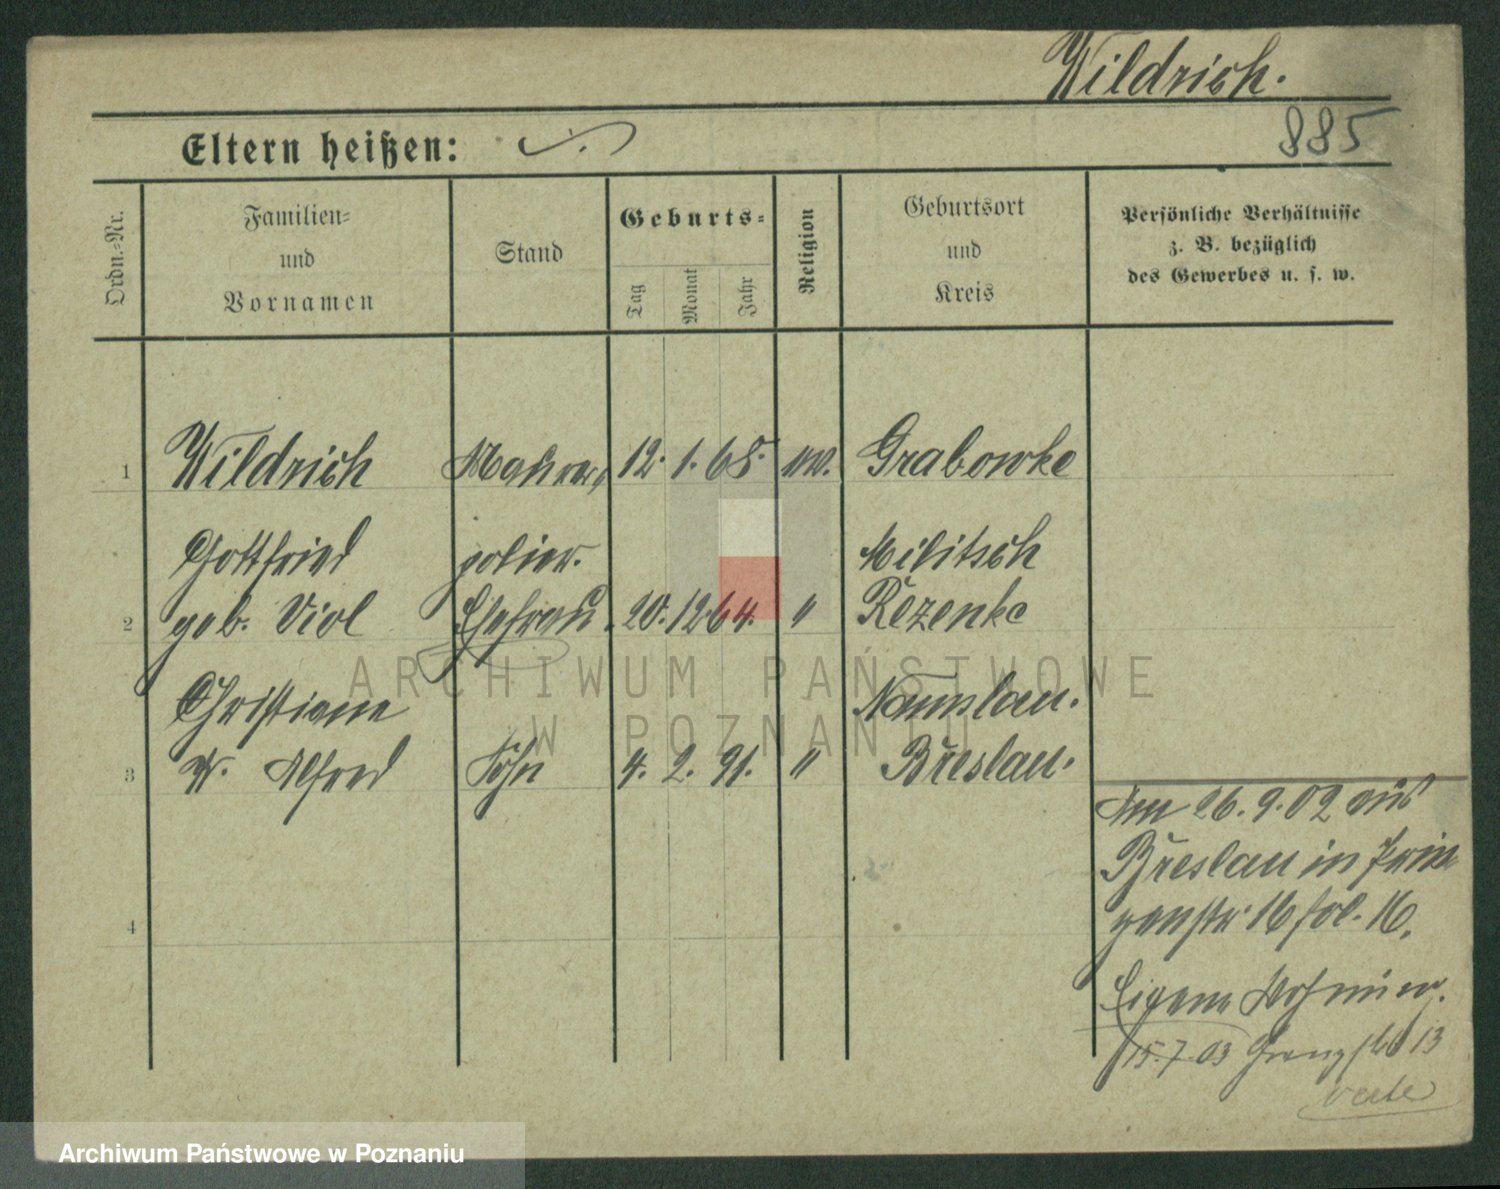 Wildrich.
885
Eltern heißen:
Ordn.=Nr.
Familien=
und
Vornamen
Stand
Geburts=
Tag
Monat
Jahr
Religion
Geburtsort
und
Kreis
Persönliche Verhältnisse
z. B. bezüglich
des Gewerbes u. s. w.
1 Wildrich Maurer 12. 1. 68. ev. Grabowke
Gottfried polier. Militsch
2 geb. Viol Ehefrau. 20. 12. 64. " Rezenke
Christiane Namslau.
3 W. Alfred Sohn 4. 2. 91. " Breslau.
4
Am 26.9.02 aus
Breslau in
16 fol. 16.
Eigene
15.7.03 13
ARCHIWUM PAŃSTWOWE
W POZNANIU
Archiwum Państwowe w Poznaniu